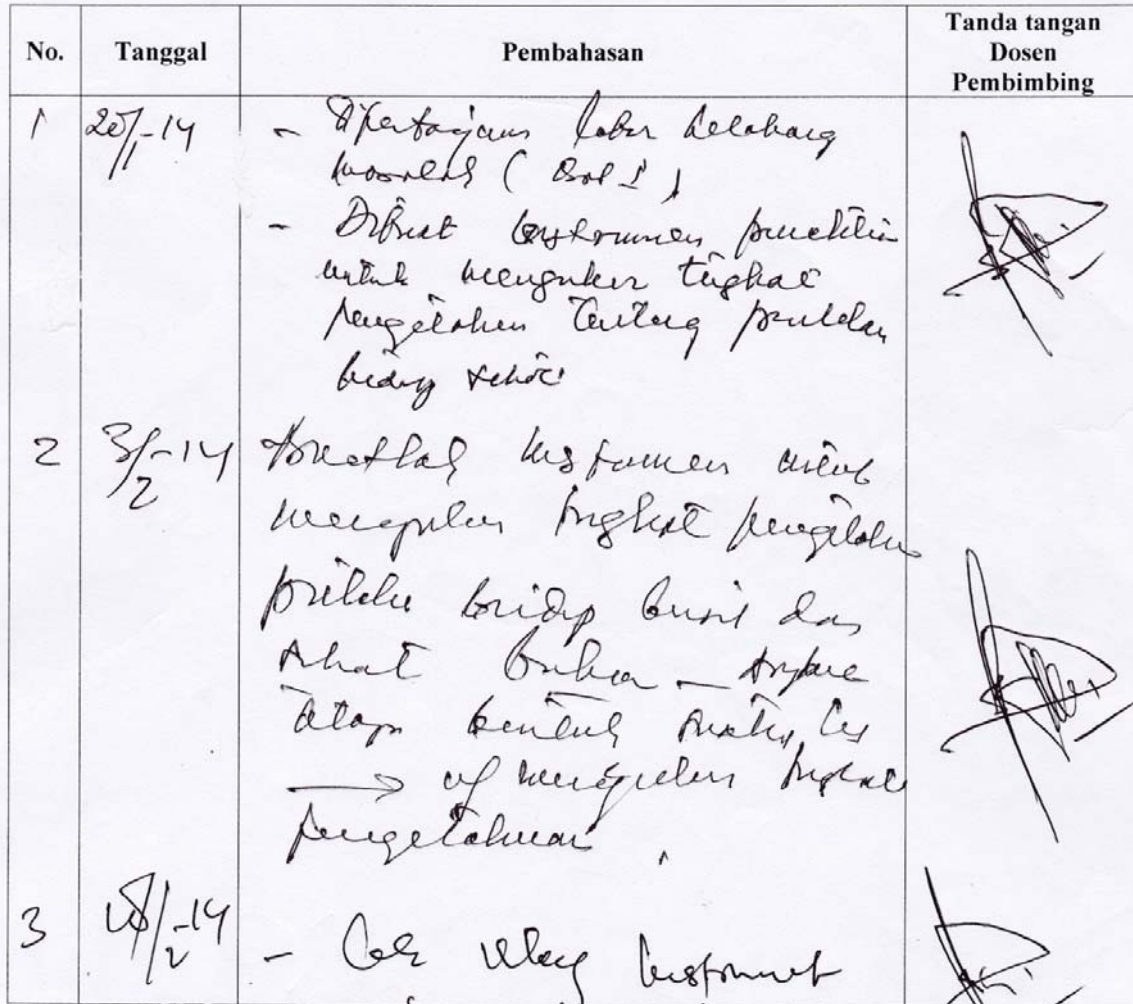 No. Tanggal Pembahasan Tanda tangan Dosen Pembimbing
1 20/1-14 - Dipertajam latar belakang
masalah (Bab I)
- Dibuat instrumen penelitian
untuk mengukur tingkat
pengetahuan tentang perilaku
hidup
2 3/2-14 Buatlah instrumen untuk
mengukur tingkat pengetahuan
perilaku hidup bersih dan
sehat bukan
tetapi bentuk tes
→ mengukur tingkat
pengetahuan
3 18/2-14 - Cek ulang instrument